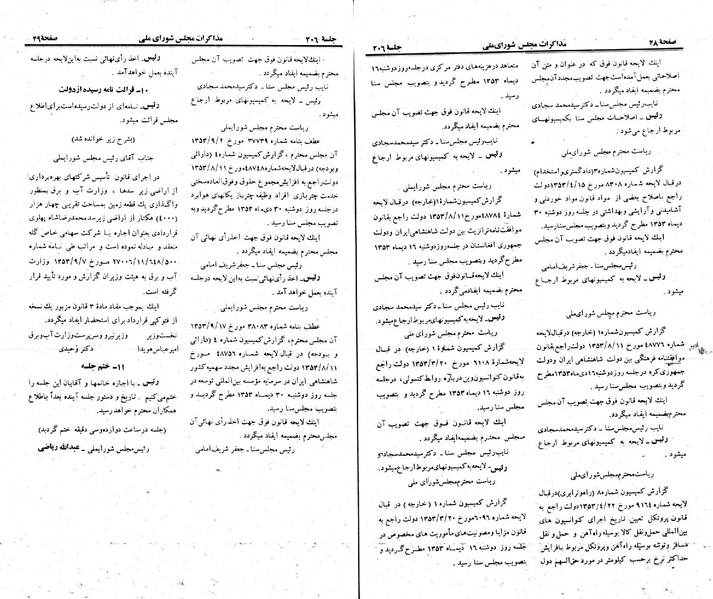 صفحهٔ ۲۸
مذاکرات مجلس شورای‌ملی
جلسهٔ ۲۰۶
اینك لایحه قانون فوق که در عنوان و متن آن
اصلاحاتی بعمل آمده‌است جهت تصویب مجدد آن مجلس
محترم بضمیمه ایفاد میگردد.
نایب‌رئیس مجلس سنا - دکتر محمد سجادی
رئیس - اصلاحات مجلس سنا بکمیسیونهای
مربوط ارجاع می‌شود.
ریاست محترم مجلس شورای‌ملی
گزارش کمیسیون شماره ۳ (دادگستری و استخدام)
در قبال لایحه شماره ۸۳۰۸ مورخ ۱۳۵۳/۴/۱۵ دولت
راجع باصلاح بعضی از مواد قانون مواد خوردنی و
آشامیدنی و آرایشی و بهداشتی در جلسه روز دوشنبه ۳۰
دی‌ماه ۱۳۵۳ مطرح گردید و بتصویب مجلس سنا رسید.
اینك لایحه قانون فوق جهت تصویب آن مجلس
محترم بضمیمه ایفاد میگردد.
رئیس مجلس سنا - جعفر شریف‌امامی
رئیس - لایحه به کمیسیونهای مربوط ارجاع
میشود.
ریاست محترم مجلس شورای‌ملی
گزارش کمیسیون شماره ۱ (خارجه) در قبال لایحه
شماره ۴۸۷۷۶ مورخ ۱۳۵۳/۸/۱۱ دولت راجع بقانون
موافقتنامه فرهنگی بین دولت شاهنشاهی ایران و دولت
جمهوری کره در جلسه روز دوشنبه ۱۶ دی‌ماه ۱۳۵۳ مطرح
گردید و بتصویب مجلس سنا رسید.
اینك لایحه قانون فوق جهت تصویب آن مجلس
محترم بضمیمه ایفاد میگردد.
نایب رئیس مجلس سنا - دکتر سید محمد سجادی
رئیس - لایحه به کمیسیونهای مربوط ارجاع
میشود.
ریاست محترم مجلس شورای‌ملی
گزارش کمیسیون شماره ۸ (راه و ترابری) در قبال
لایحه شماره ۹۱۶۴ مورخ ۱۳۵۳/۴/۲۲ دولت راجع به
قانون پروتکل تعیین تاریخ اجرای کنوانسیون های
بین‌المللی حمل‌ونقل کالا بوسیله راه‌آهن و حمل‌و نقل
مسافر و توشه بوسیله راه‌آهن و پروتکل مربوط بافزایش
حداکثر نرخ برحسب کیلومتر در مورد حق‌السهم دول
متعاهد در هزینه‌های دفتر مرکزی در جلسه روز دوشنبه ۱۶
دیماه ۱۳۵۳ مطرح گردید و بتصویب مجلس سنا
رسید.
اینك لایحه قانون فوق جهت تصویب آن مجلس
محترم بضمیمه ایفاد میگردد.
نایب رئیس مجلس سنا - دکتر سید محمد سجادی
رئیس - لایحه به کمیسیونهای مربوط ارجاع
میگردد.
ریاست محترم مجلس شورای‌ملی
گزارش کمیسیون شمارهٔ ۱ (خارجه) در قبال لایحه
شمارهٔ ۴۸۷۸۴ مورخ ۱۳۵۳/۸/۱۱ دولت راجع بقانون
موافقت‌نامه ترانزیت بین دولت شاهنشاهی ایران و دولت
جمهوری افغانستان در جلسه روز دوشنبه ۱۶ دیماه ۱۳۵۳
مطرح گردید و بتصویب مجلس سنا رسید.
اینك لایحه قانون فوق جهت تصویب آن مجلس
محترم بضمیمه ایفاد میگردد.
نایب رئیس مجلس سنا - دکتر سید محمد سجادی
رئیس - لایحه به کمیسیونهای مربوط ارجاع میشود.
ریاست محترم مجلس شورای‌ملی
گزارش کمیسیون شمارهٔ ۱ (خارجه) در قبال
لایحه شمارهٔ ۶۱۰۸ مورخ ۱۳۵۳/۳/۲۰ دولت راجع
به قانون کنوانسیون وین دربارهٔ روابط کنسولی، در جلسه
روز دوشنبه ۱۶ دیماه ۱۳۵۳ مطرح گردید و بتصویب
مجلس سنا رسید.
اینك لایحه قانون فوق جهت تصویب آن
مجلس محترم بضمیمه ایفاد میگردد.
نایب رئیس مجلس سنا - دکتر سید محمد سجادی
رئیس - لایحه به کمیسیونهای مربوط ارجاع میشود.
ریاست محترم مجلس شورای ملی
گزارش کمیسیون شماره ۱ (خارجه) در قبال
لایحه شماره ۶۰۹۶ مورخ ۱۳۵۳/۳/۲۰ دولت راجع به
قانون مزایا و مصونیت‌های مأموریت های مخصوص در
جلسه روز دوشنبه ۱۶ دیماه ۱۳۵۳ مطرح گردید و
بتصویب مجلس سنا رسید.
جلسهٔ ۲۰۶
مذاکرات مجلس شورای ملی
صفحهٔ ۲۹
اینك لایحه قانون فوق جهت تصویب آن مجلس
محترم بضمیمه ایفاد میگردد.
نایب رئیس مجلس سنا - دکتر سید محمد سجادی
رئیس - لایحه به کمیسیونهای مربوط ارجاع
میشود.
ریاست محترم مجلس شورایملی
عطف بنامه شماره ۳۷۷۳۹ مورخ ۱۳۵۳/۹/۲
آن مجلس محترم، گزارش کمیسیون شماره ۴ (دارائی
و بودجه) در قبال لایحه شماره ۴۸۷۴۸ مورخ ۱۳۵۳/۸/۱۱
دولت راجع به افزایش مجموع حقوق و فوق‌العاده سختی
خدمت چتربازی افراد وظیفه چترباز یکانهای هوابرد
در جلسه روز دوشنبه ۳۰ دی‌ماه ۱۳۵۳ مطرح گردید و به
تصویب مجلس سنا رسید.
اینك لایحه قانون فوق جهت اخذ رأی نهائی آن
مجلس محترم بضمیمه ایفاد میگردد.
رئیس مجلس سنا - جعفر شریف امامی
رئیس - اخذ رأی نهائی نسبت به این لایحه در جلسه
آینده بعمل خواهد آمد.
ریاست محترم مجلس شورایملی
عطف بنامه شماره ۳۸۰۸۳ مورخ ۱۳۵۳/۹/۱۷
آن مجلس محترم، گزارش کمیسیون شماره ۴ (دارائی
و بودجه) در قبال لایحه شماره ۴۸۷۵۶ مورخ
۱۳۵۳/۸/۱۱ دولت راجع به افزایش مجدد سهمیه کشور
شاهنشاهی ایران در سرمایه مؤسسه بین‌المللی توسعه در
جلسه روز دوشنبه ۳۰ دیماه ۱۳۵۳ مطرح گردید و
بتصویب مجلس سنا رسید.
اینك لایحه قانون فوق جهت اخذ رأی نهائی آن
مجلس محترم بضمیمه ایفاد میگردد.
رئیس مجلس سنا - جعفر شریف‌امامی
رئیس - اخذ رأی نهائی نسبت به این لایحه در جلسه
آینده بعمل خواهد آمد.
۱۰- قرائت نامه رسیده از دولت
رئیس - نامه‌ای از دولت رسیده‌است برای اطلاع
مجلس قرائت میشود.
(بشرح زیر خوانده شد)
جناب آقای رئیس مجلس شورایملی
در اجرای قانون تأسیس شرکتهای بهره‌برداری
از اراضی زیر سدها، وزارت آب و برق بمنظور
واگذاری یك قطعه زمین بمساحت تقریبی چهار هزار
(۴۰۰۰) هکتار از اراضی زیر سد محمدرضاشاه پهلوی
قراردادی بعنوان اجاره با شرکت سهامی خاص گله
منعقد و مبادله نموده است و مراتب طی نامه شماره
۲۷۰۰۶/۱۱/۶۴۸/۵۰۰ مورخ ۱۳۵۳/۹/۷ وزارت
آب و برق به هیئت وزیران گزارش و مورد تأیید قرار
گرفته است.
اینك بموجب مفاد مادهٔ ۳ قانون مزبور یك نسخه
از فتوکپی قرارداد برای استحضار ایفاد میگردد.
نخست‌وزیر وزیر نیرو و سرپرست وزارت آب و برق
امیرعباس هویدا دکتر وحیدی
۱۱- ختم جلسه
رئیس - با اجازه خانمها و آقایان این جلسه را
ختم می‌کنیم. تاریخ و دستور جلسه آینده بعداً باطلاع
همکاران محترم خواهد رسید.
(جلسه در ساعت دوازده و سی دقیقه ختم گردید)
رئیس مجلس شورایملی - عبدالله ریاضی